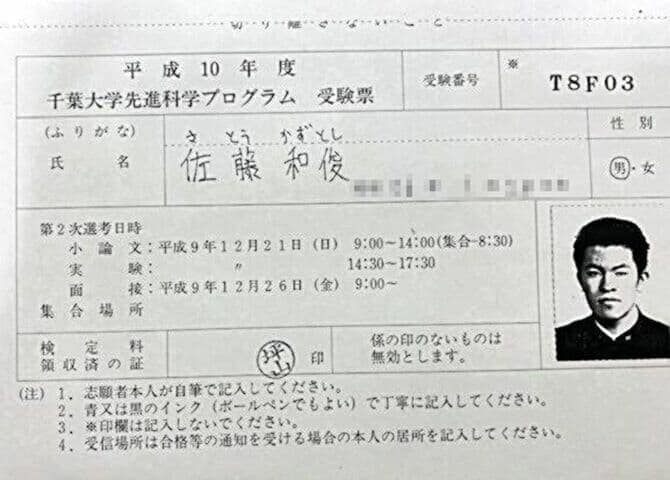 切り離さないこと
平成10年度
千葉大学先進科学プログラム 受験票
受験番号
※
T8F03
(ふりがな)
さとう かずとし
氏名
佐藤和俊
性別
男・女
第2次選考日時
小論文:平成9年12月21日(日) 9:00~14:00(集合-8:30)
実験: 〃 14:30~17:30
面接:平成9年12月26日(金) 9:00~
集合場所
検定料
領収済の証
坪山
印
係の印のないものは
無効とします。
(注) 1.志願者本人が自筆で記入してください。
2.青又は黒のインク(ボールペンでもよい)で丁寧に記入してください。
3.※印欄は記入しないでください。
4.受信場所は合格等の通知を受ける場合の本人の居所を記入してください。